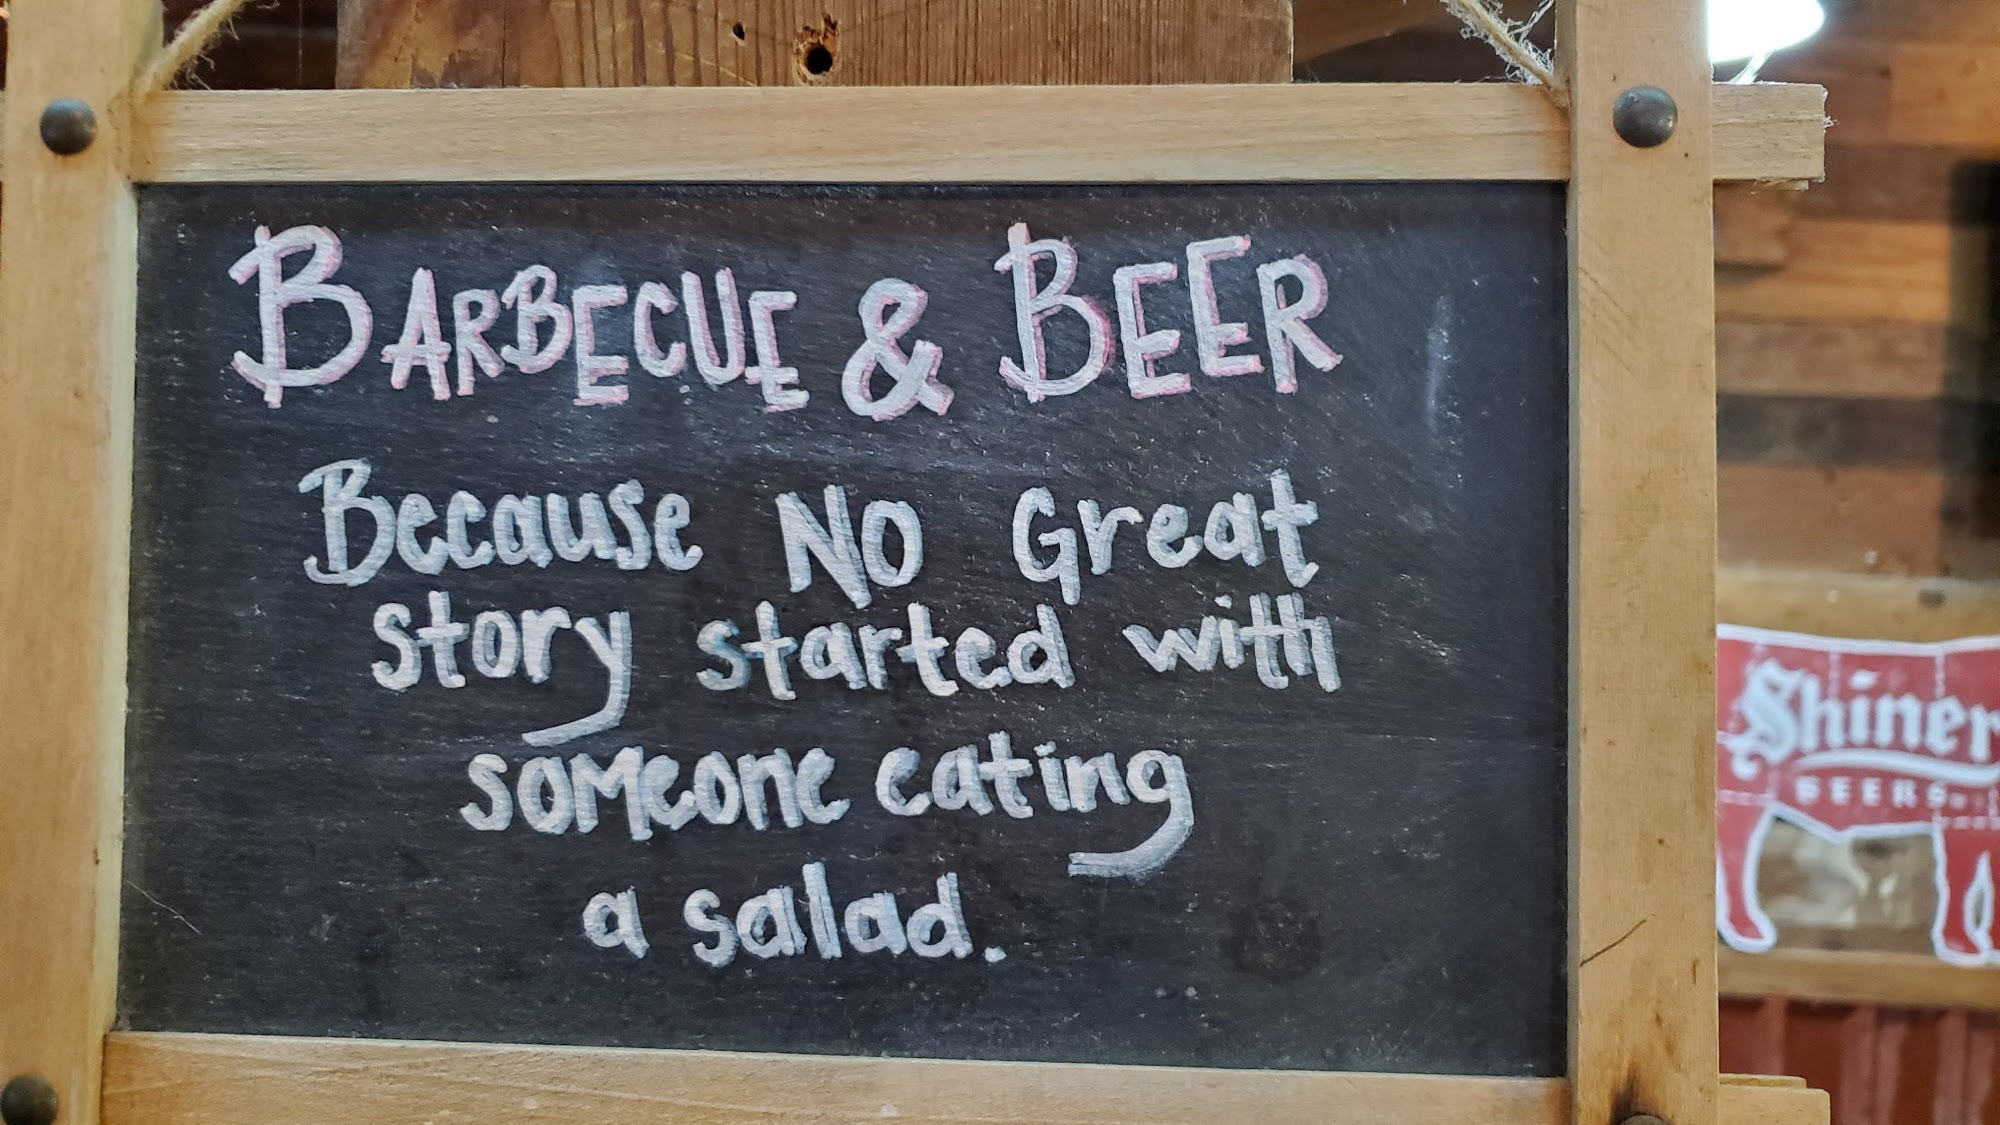 BARBECUE & BEER
Because NO Great
story started with
someone eating
a salad.
Shiner
BEERS